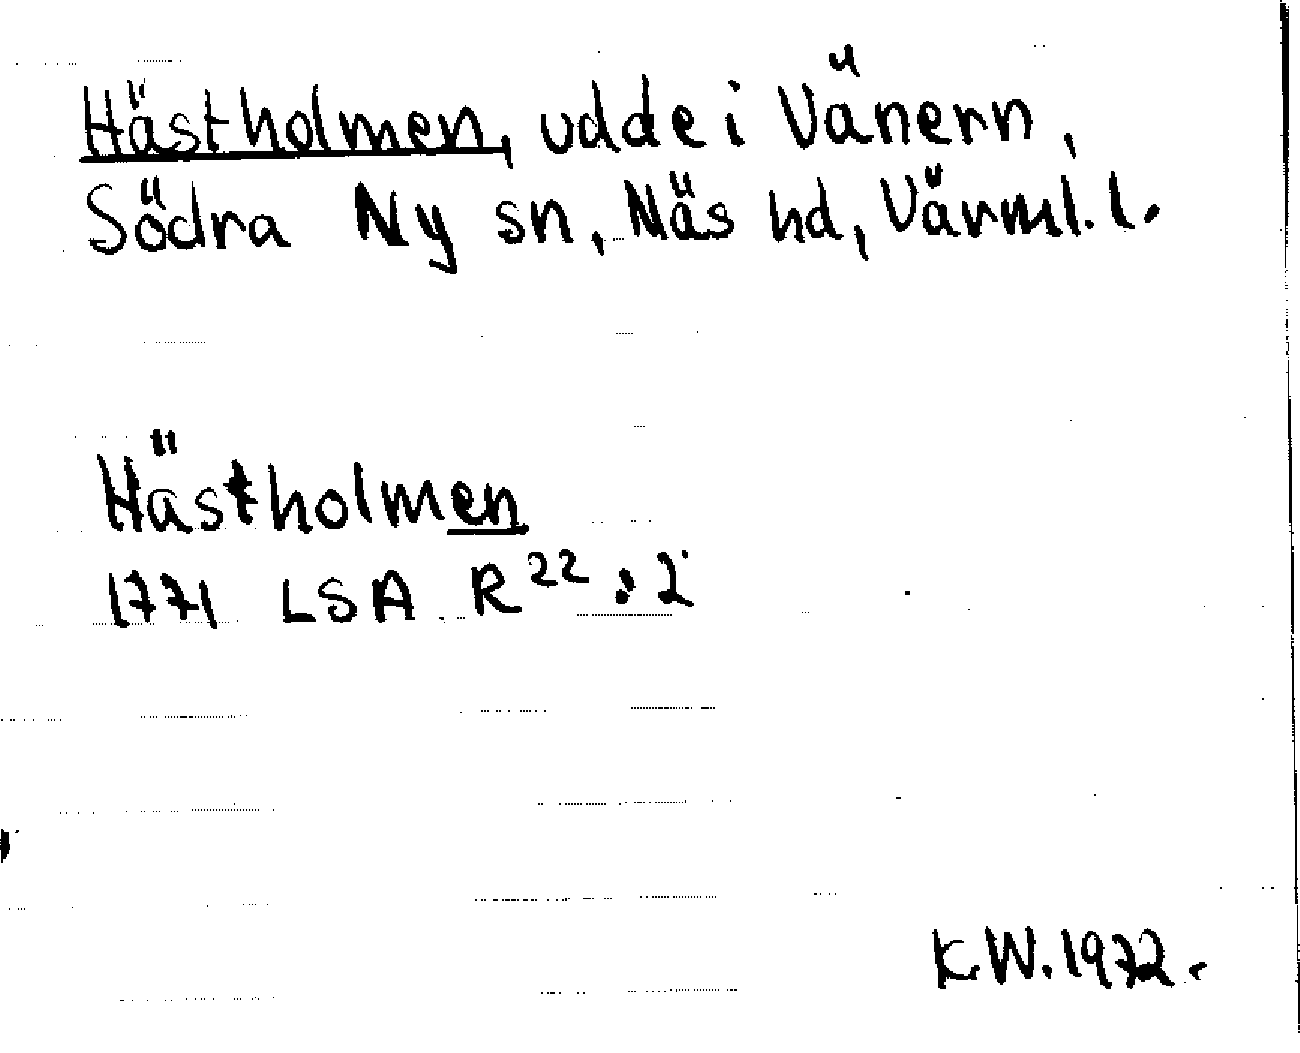 Hästholmen, udde i Vänern,
Södra Ny sn, Näs hd, Värml. l.
Hästholmen
1771 LSA R 22 : 2
K.W. 1972.